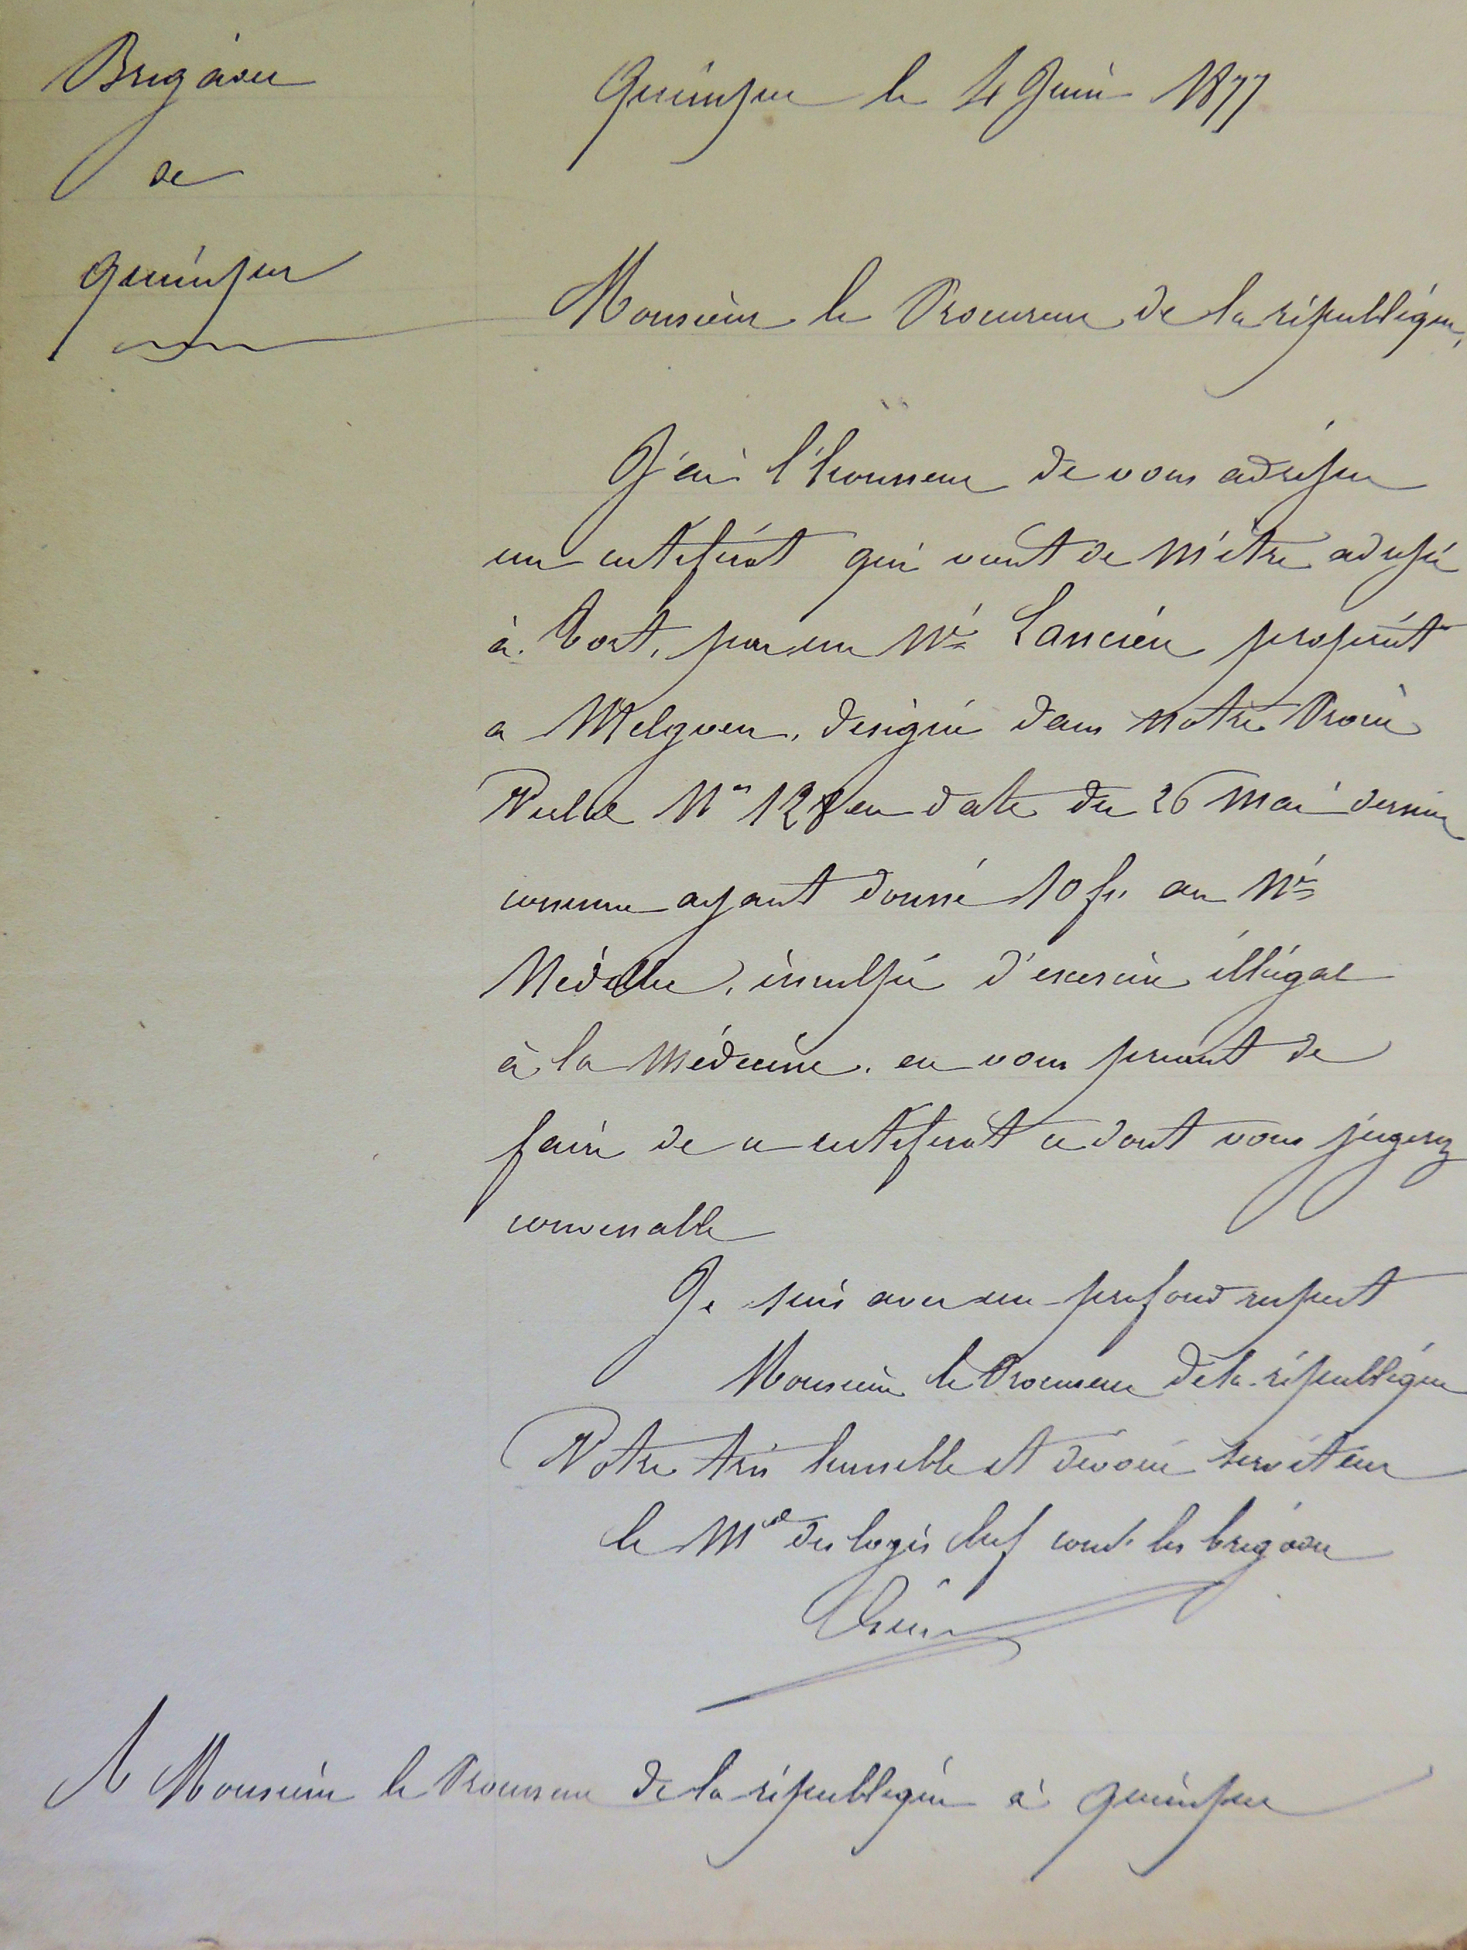 Brigade
de
Quimper
Quimper le 4 Juin 1877
Monsieur le Procureur de la république,
J'ai l'honneur de vous adresser
un certificat qui vient de m'être adressé
à tort, par un Né Lancien propriét
a Melgven, designé dans notre Procès
Verbal N° 128 en date du 26 Mai dernier
comme ayant donné 10 fr. au Né
inculpé d'exercice illégal
à la Médecine. en vous priant de
faire de ce certificat ce dont vous jugerez
convenable
Je suis avec un profond respect
Monsieur le Procureur de la république
Votre très humble et dévoué serviteur
le Mal des logis chef comt la brigade
A Monsieur le Procureur de la république à Quimper